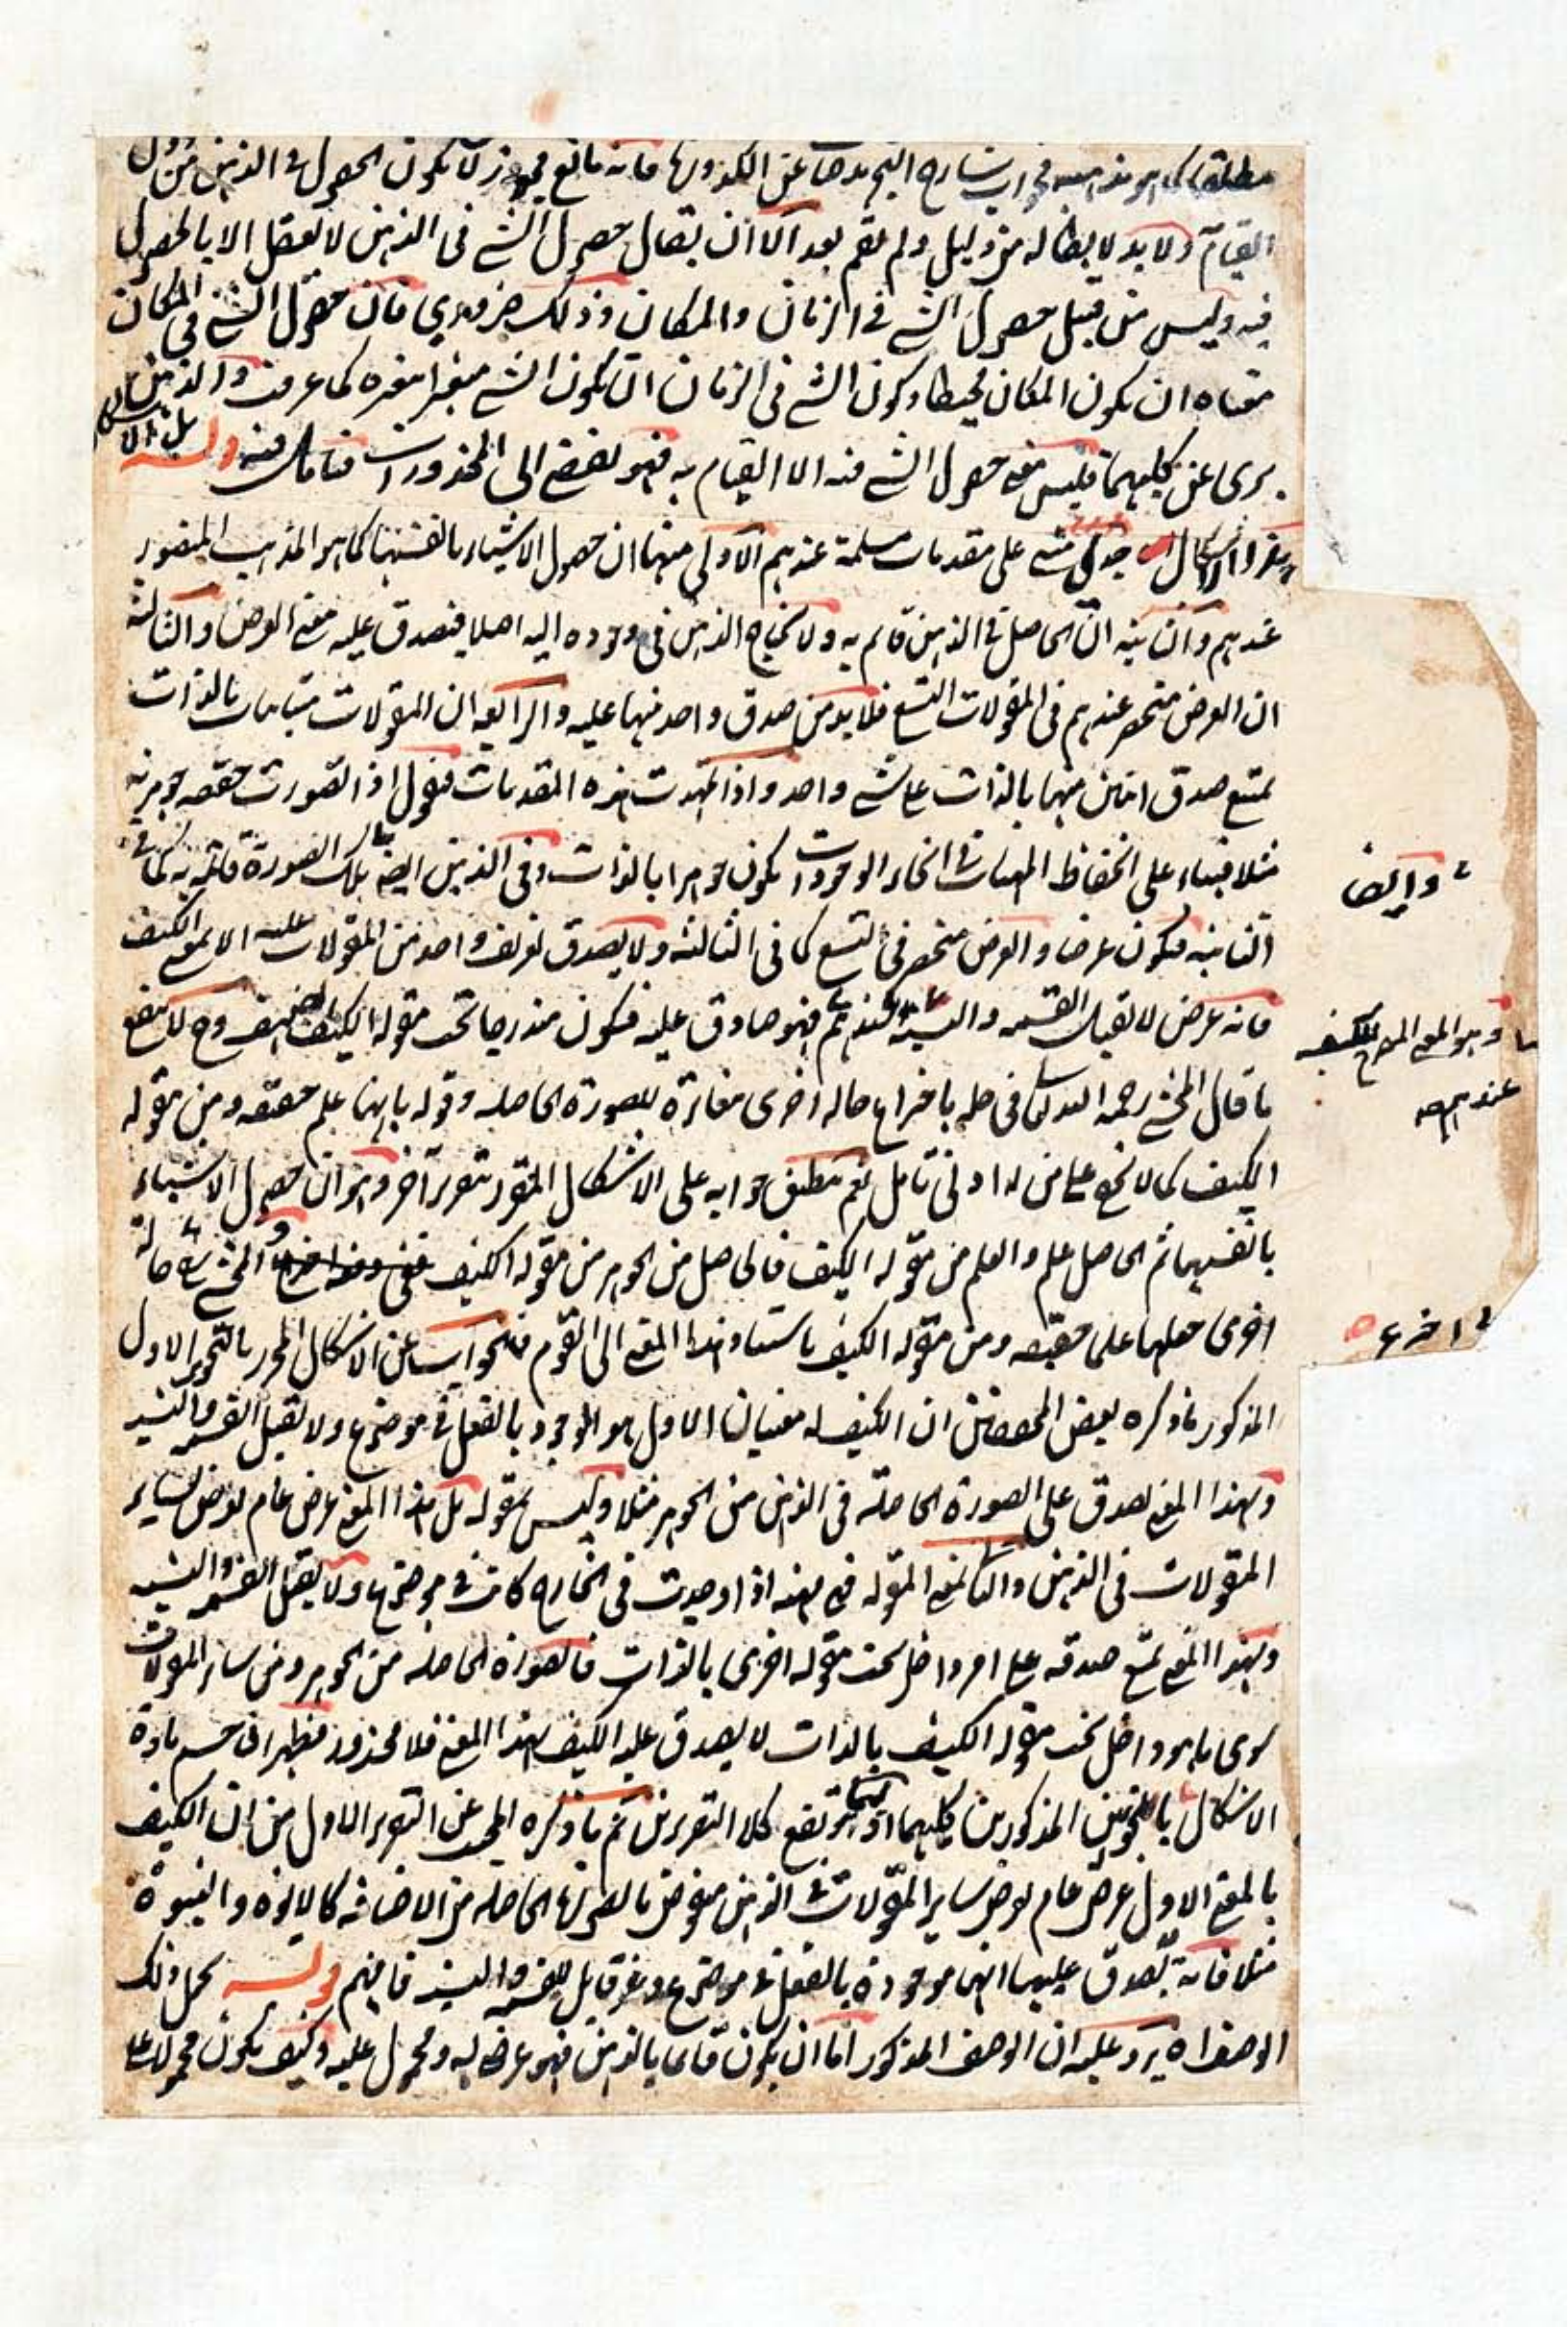 مطلقا كما هو مذهبه في جواب شارح التجريد عن المذكورها فانه مانع فيجوز ان لا يكون الحصول في الذهن من دون
القيام ولا بد لابطاله من دليل ولم يقم بعد الا ان يقال حصول الشئ في الذهن لا يعقل الا بالحصول
فيه وليس من قبيل حصول الشئ في الزمان والمكان وذلك ضروري فان حصول الشئ في المكان
معناه ان يكون المكان محيطا وكون الشئ في الزمان ان يكون الشئ متغيرا بتغيره كما عرفت والذهن
برى عن كليهما فليس معنى حصول الشئ فيه الا القيام به فهو يفضى الى المحذورات فتأمل فيه قوله بل الاشكال
الاشكال جدلي مبنى على مقدمات مسلمة عندهم الاولى منها ان حصول الاشياء بانفسها كما هو المذهب المنصور
عندهم والثانية ان الحاصل في الذهن قائم به ولا يحتاج الذهن في وجوده اليه اصلا فيصدق عليه معنى العرض والثالثة
ان العرض منحصر عندهم في المقولات التسع فلا بد من صدق واحد منها عليه والرابعة ان المقولات متباينات بالذات
يمتنع صدق اثنين منها بالذات على شئ واحد واذا تمهدت هذه المقدمات فنقول اذا تصورت حقيقة جوهرية
مثلا فبناء على انحفاظ المهيات في انحاء الوجودات يكون جوهرا بالذات وفي الذهن ايضا تلك الصورة قائمة به كما في
الثانية فيكون عرضا والعرض منحصر في التسع كما في الثالثة ولا يصدق تعريف واحد من المقولات عليه الا بمعنى الكيف
فانه عرض لا يقبل القسمة والنسبة عندهم فهو صادق عليه فيكون مندرجا تحت مقولة الكيف وح لا ينفع
ما قال المحشى رحمه الله تعالى في حله باختراع حالة اخرى مغايرة للصورة الحاصلة وقوله بانها علم حقيقة ومن مقولة
الكيف كما لا يخفى على من له ادنى تأمل نعم ينطبق جوابه على الاشكال المقرر بتقرير آخر وهو ان حصول الاشياء
بانفسها ثم الحاصل علم والعلم من مقولة الكيف فالحاصل من الجوهر من مقولة الكيف المحشى حالة
اخرى جعلها علما حقيقة ومن مقولة الكيف باسناد هذا المعنى الى القوم فالجواب عن الاشكال المحرر بالتحرير الاول
المذكور ما ذكره بعض المحققين ان الكيف له معنيان الاول هو الموجود بالفعل في موضوع ولا يقبل القسمة والنسبة
وبهذا المعنى يصدق على الصورة الحاصلة في الذهن من الجوهر مثلا وليس بمقولة بل هذا المعنى عرض عام يعرض لسائر
المقولات في الذهن والثانى معنى المقولة فهى مهية اذا وجدت في الخارج كانت في موضوع ولا يقبل القسمة والنسبة
وبهذا المعنى يمتنع صدقه على امر داخل تحت مقولة اخرى بالذات فالصورة الحاصلة من الجوهر ومن سائر المقولات
سوى ما هو داخل تحت مقولة الكيف بالذات لا يصدق عليه الكيف بهذا المعنى فلا محذور فظهر ان حسم مادة
الاشكال بالتحريرين المذكورين كليهما كلا التقريرين ثم ما ذكره المجيب عن التقرير الاول من ان الكيف
بالمعنى الاول عرض عام يعرض ساير المقولات في الذهن منقوض بالصورة الحاصلة من الاضافة كالابوة والبنوة
مثلا فانه يصدق عليها انها موجودة بالفعل في موضوع وغير قابل للقسمة والنسبة فافهم قوله يحمل ذلك
الوصف اه يرد عليه ان الوصف المذكور اما ان يكون قائما بالذهن فهو عرض له ومحمول عليه وكيف يكون محمولا على
وايضا
وهو المعنى للكيف
عندهم
اخترع